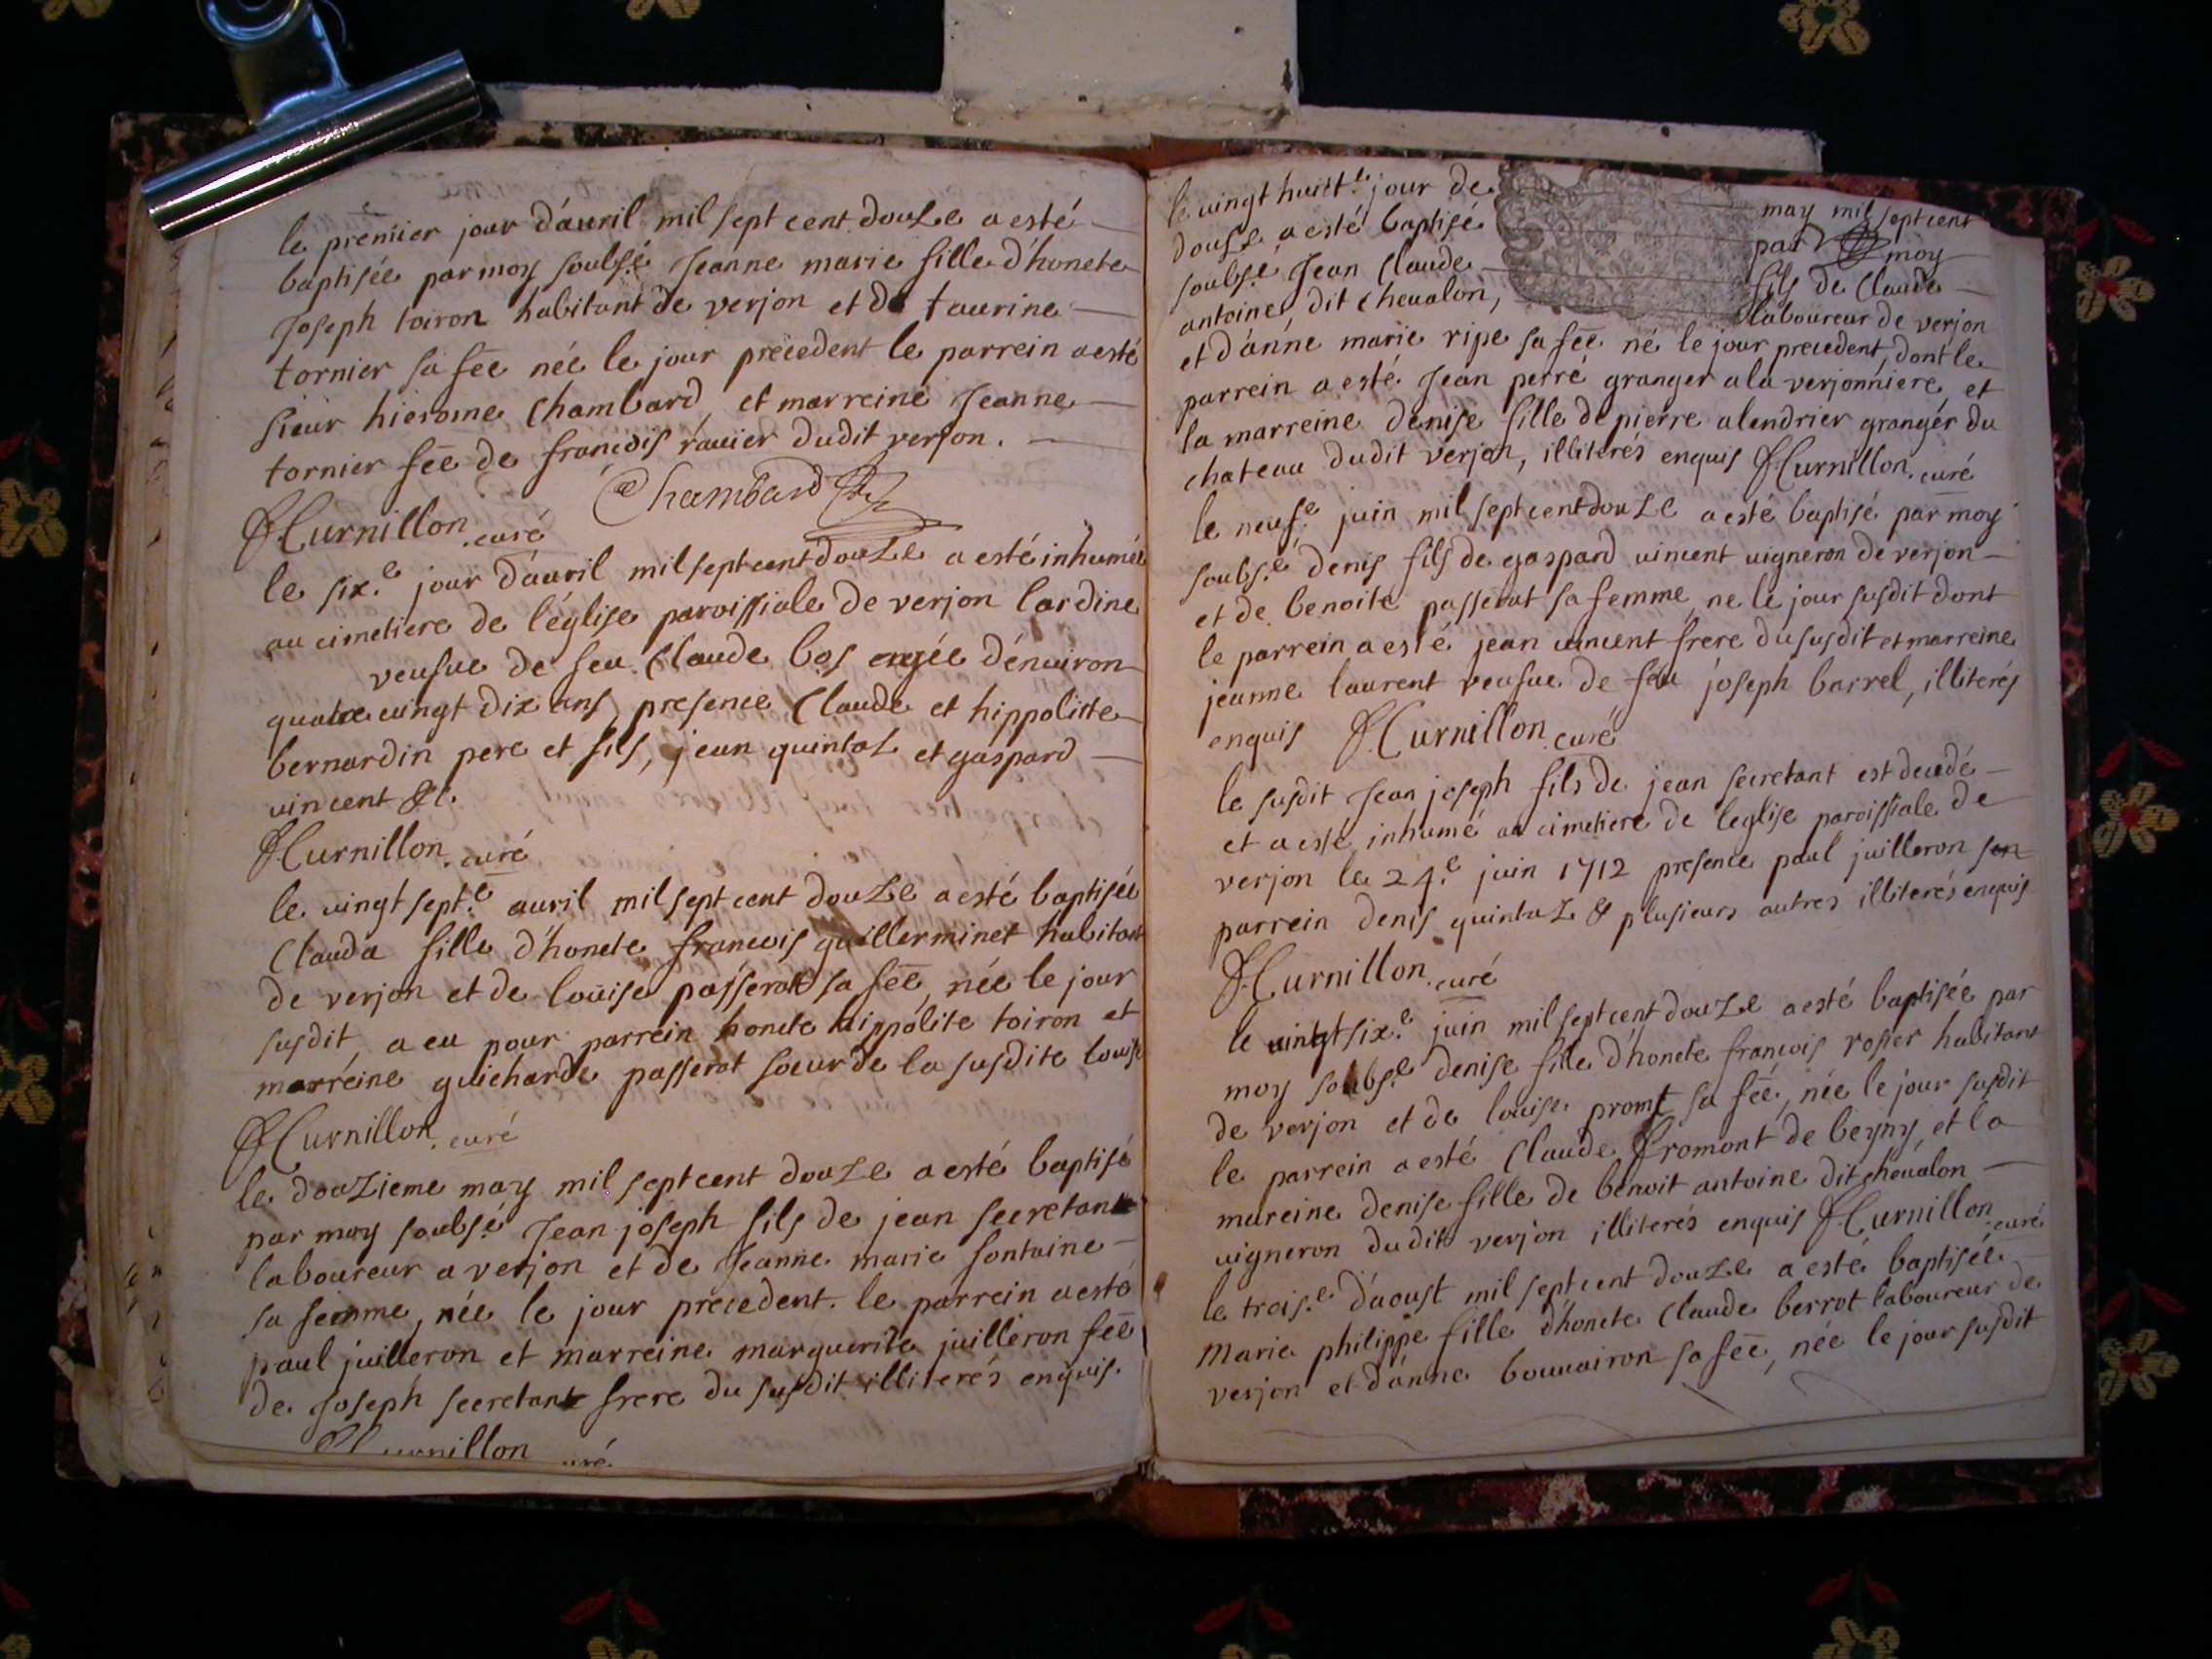 le premier jour d'auril mil sept cent douze a esté
baptisée par moy soubsé Jeanne marie fille d'honete
Joseph toiron habitant de verjon et de taurine
tornier sa fēe née le jour precedent le parrein a esté
sieur hierome Chambard, et marreine Jeanne
tornier fēe de francois rauier dudit verjon.
Chambard
Curnillon curé
le six.e jour d'auril mil sept cent douze a esté inhumée
au cimetiere de l'église paroissiale de verjon lardine
veufue de feu Claude bos agée d'enuiron
quatre uingt dix ans, presence Claude et hippolitte
bernardin pere et fils, jean quintaz et gaspard
vincent &c.
Curnillon curé
le uingt sept.e auril mil sept cent douze a esté baptisée
Clauda fille d'honete francois guillerminet habitant
de verjon et de loüise passerat sa fēe, née le jour
susdit, a eu pour parrein honete hippolite toiron et
marreine guicharde passerat soeur de la susdite louise
Curnillon curé
le douzieme may mil sept cent douze a esté baptisé
par moy soubsé Jean joseph fils de jean secretant
laboureur a verjon et de Jeanne marie fontaine
sa femme, née le jour precedent. le parrein a esté
paul juilleron et marreine marguerite juilleron fēe
de Joseph secretant frere du susdit illiterés enquis.
Curnillon curé
le uingt huict.e jour de may mil sept cent
douze a esté baptisé par moy
soubsé Jean Claude fils de Claude
antoine dit cheualon, laboureur de verjon
et d'anne marie ripe sa fēe né le jour precedent, dont le
parrein a esté Jean perré granger a la verjonniere, et
la marreine denise fille de pierre alendrier granger du
chateau dudit verjon, illiterés enquis Curnillon curé
le neuf.e juin mil sept cent douze a esté baptisé par moy
soubs.é denis fils de gaspard uincent uigneron de verjon
et de benoite passerat sa femme, ne le jour susdit dont
le parrein a esté jean uincent frere du susdit et marreine
jeanne laurent veufue de feu joseph barrel, illiterés
enquis Curnillon curé
le susdit Jean joseph fils de jean secretant est decedé
et a esté inhumé au cimetiere de leglise paroissiale de
verjon le 24.e juin 1712 presence paul juilleron son
parrein denis quintaz & plusieurs autres illiterés enquis
Curnillon curé
le uingt six.e juin mil sept cent douze a esté baptisée par
moy soubs.é denise fille d'honete francois rosier habitant
de verjon et de louise promt sa fēe, née le jour susdit
le parrein a esté Claude fromont de beyny, et la
mareine denise fille de benoit antoine dit cheualon
uigneron dudit verjon illiterés enquis Curnillon curé
le trois.e d'aoust mil sept cent douze a esté baptisée
Marie philippe fille d'honete Claude berrot laboureur de
verjon et d'anne bouuairon sa fēe, née le jour susdit